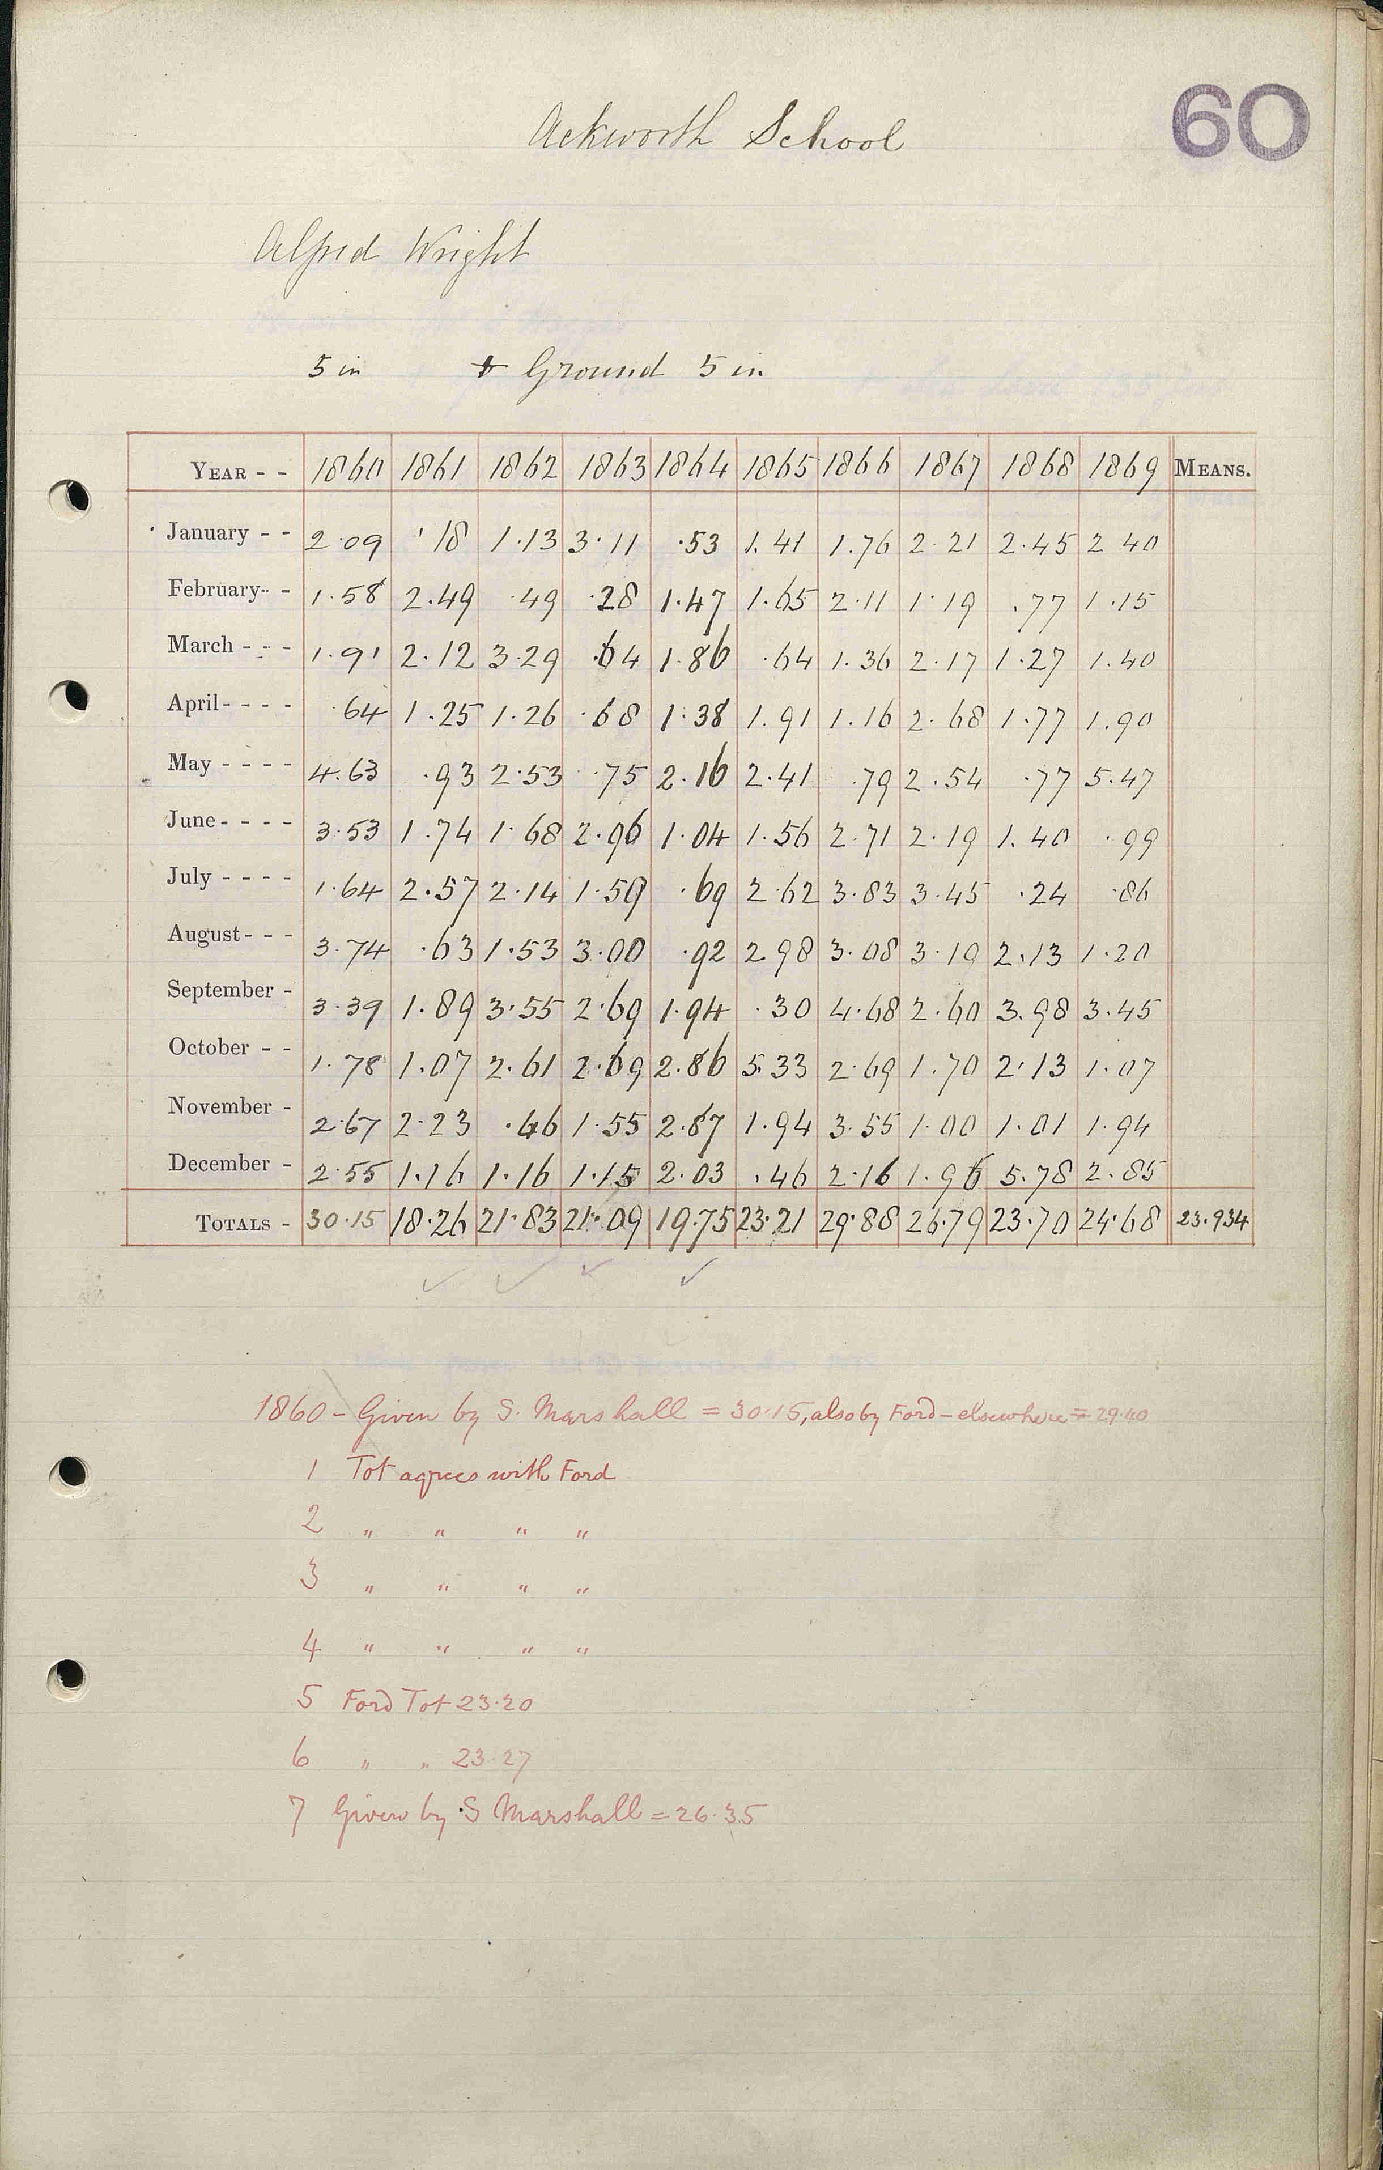 60
Ackworth School
Alfred Wright
5 in Ground 5 in
YEAR - - 1860 1861 1862 1863 1864 1865 1866 1867 1868 1869 MEANS.
January - - 2.09 .18 1.13 3.11 .53 1.41 1.76 2.21 2.45 2.40
February - - 1.58 2.49 .49 .28 1.47 1.65 2.11 1.19 .77 1.15
March - - - 1.91 2.12 3.29 .64 1.86 .64 1.36 2.17 1.27 1.40
April - - - - .64 1.25 1.26 .68 1.38 1.91 1.16 2.68 1.77 1.90
May - - - - 4.63 .93 2.53 .75 2.16 2.41 .79 2.54 .77 5.47
June - - - - 3.53 1.74 1.68 2.96 1.04 1.56 2.71 2.19 1.40 .99
July - - - - 1.64 2.57 2.14 1.59 .69 2.62 3.83 3.45 .24 .86
August - - - 3.74 .63 1.53 3.00 .92 2.98 3.08 3.10 2.13 1.20
September - 3.39 1.89 3.55 2.69 1.94 .30 4.68 2.60 3.98 3.45
October - - 1.78 1.07 2.61 2.69 2.86 5.33 2.69 1.70 2.13 1.07
November - 2.67 2.23 .46 1.55 2.87 1.94 3.55 1.00 1.01 1.94
December - 2.55 1.16 1.16 1.15 2.03 .46 2.16 1.96 5.78 2.85
TOTALS - 30.15 18.26 21.83 21.09 19.75 23.21 29.88 26.79 23.70 24.68 23.934
1860 - Given by S. Marshall = 30.15, also by Ford - elsewhere = 29.40
1 Tot agrees with Ford
2 " " " "
3 " " " "
4 " " " "
5 Ford Tot 23.20
6 " " 23.27
7 Given by S Marshall = 26.35